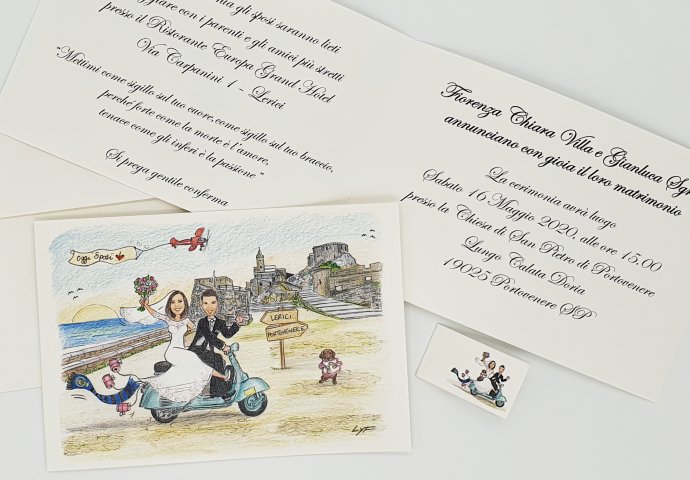 gli sposi saranno lieti
con i parenti e gli amici più stretti
presso il Ristorante Europa Grand Hotel
Via Carpanini 1 - Lerici
"Mettimi come sigillo sul tuo cuore, come sigillo sul tuo braccio,
perché forte come la morte è l'amore,
tenace come gli inferi è la passione"
Si prega gentile conferma
Fiorenza Chiara Villa e Gianluca
annunciano con gioia il loro matrimonio
La cerimonia avrà luogo
Sabato 16 Maggio 2020, alle ore 15.00
presso la Chiesa di San Pietro di Portovenere
Lungo Calata Doria
19025 Portovenere SP
Oggi Sposi
LERICI
PORTOVENERE
LYF